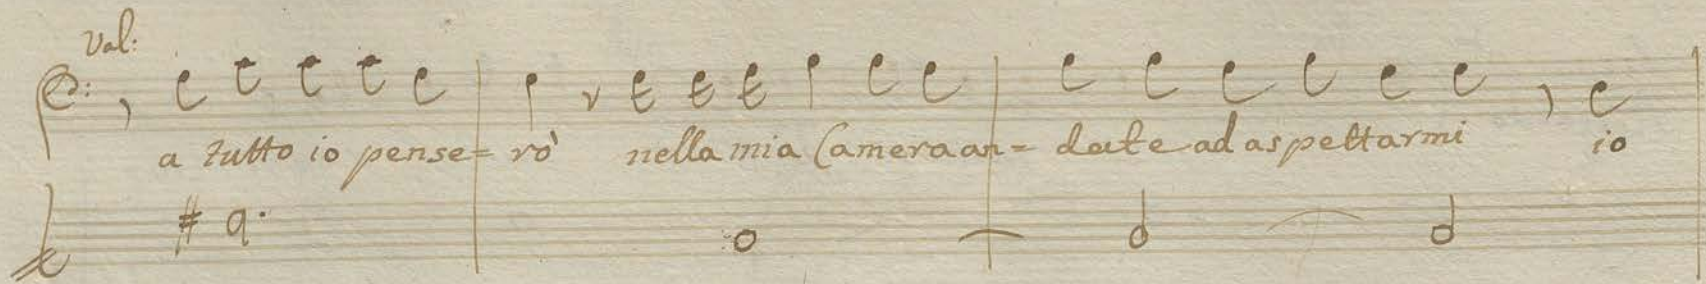 Val:
a tutto io pense= rò nella mia Camera an= date ad aspettarmi io